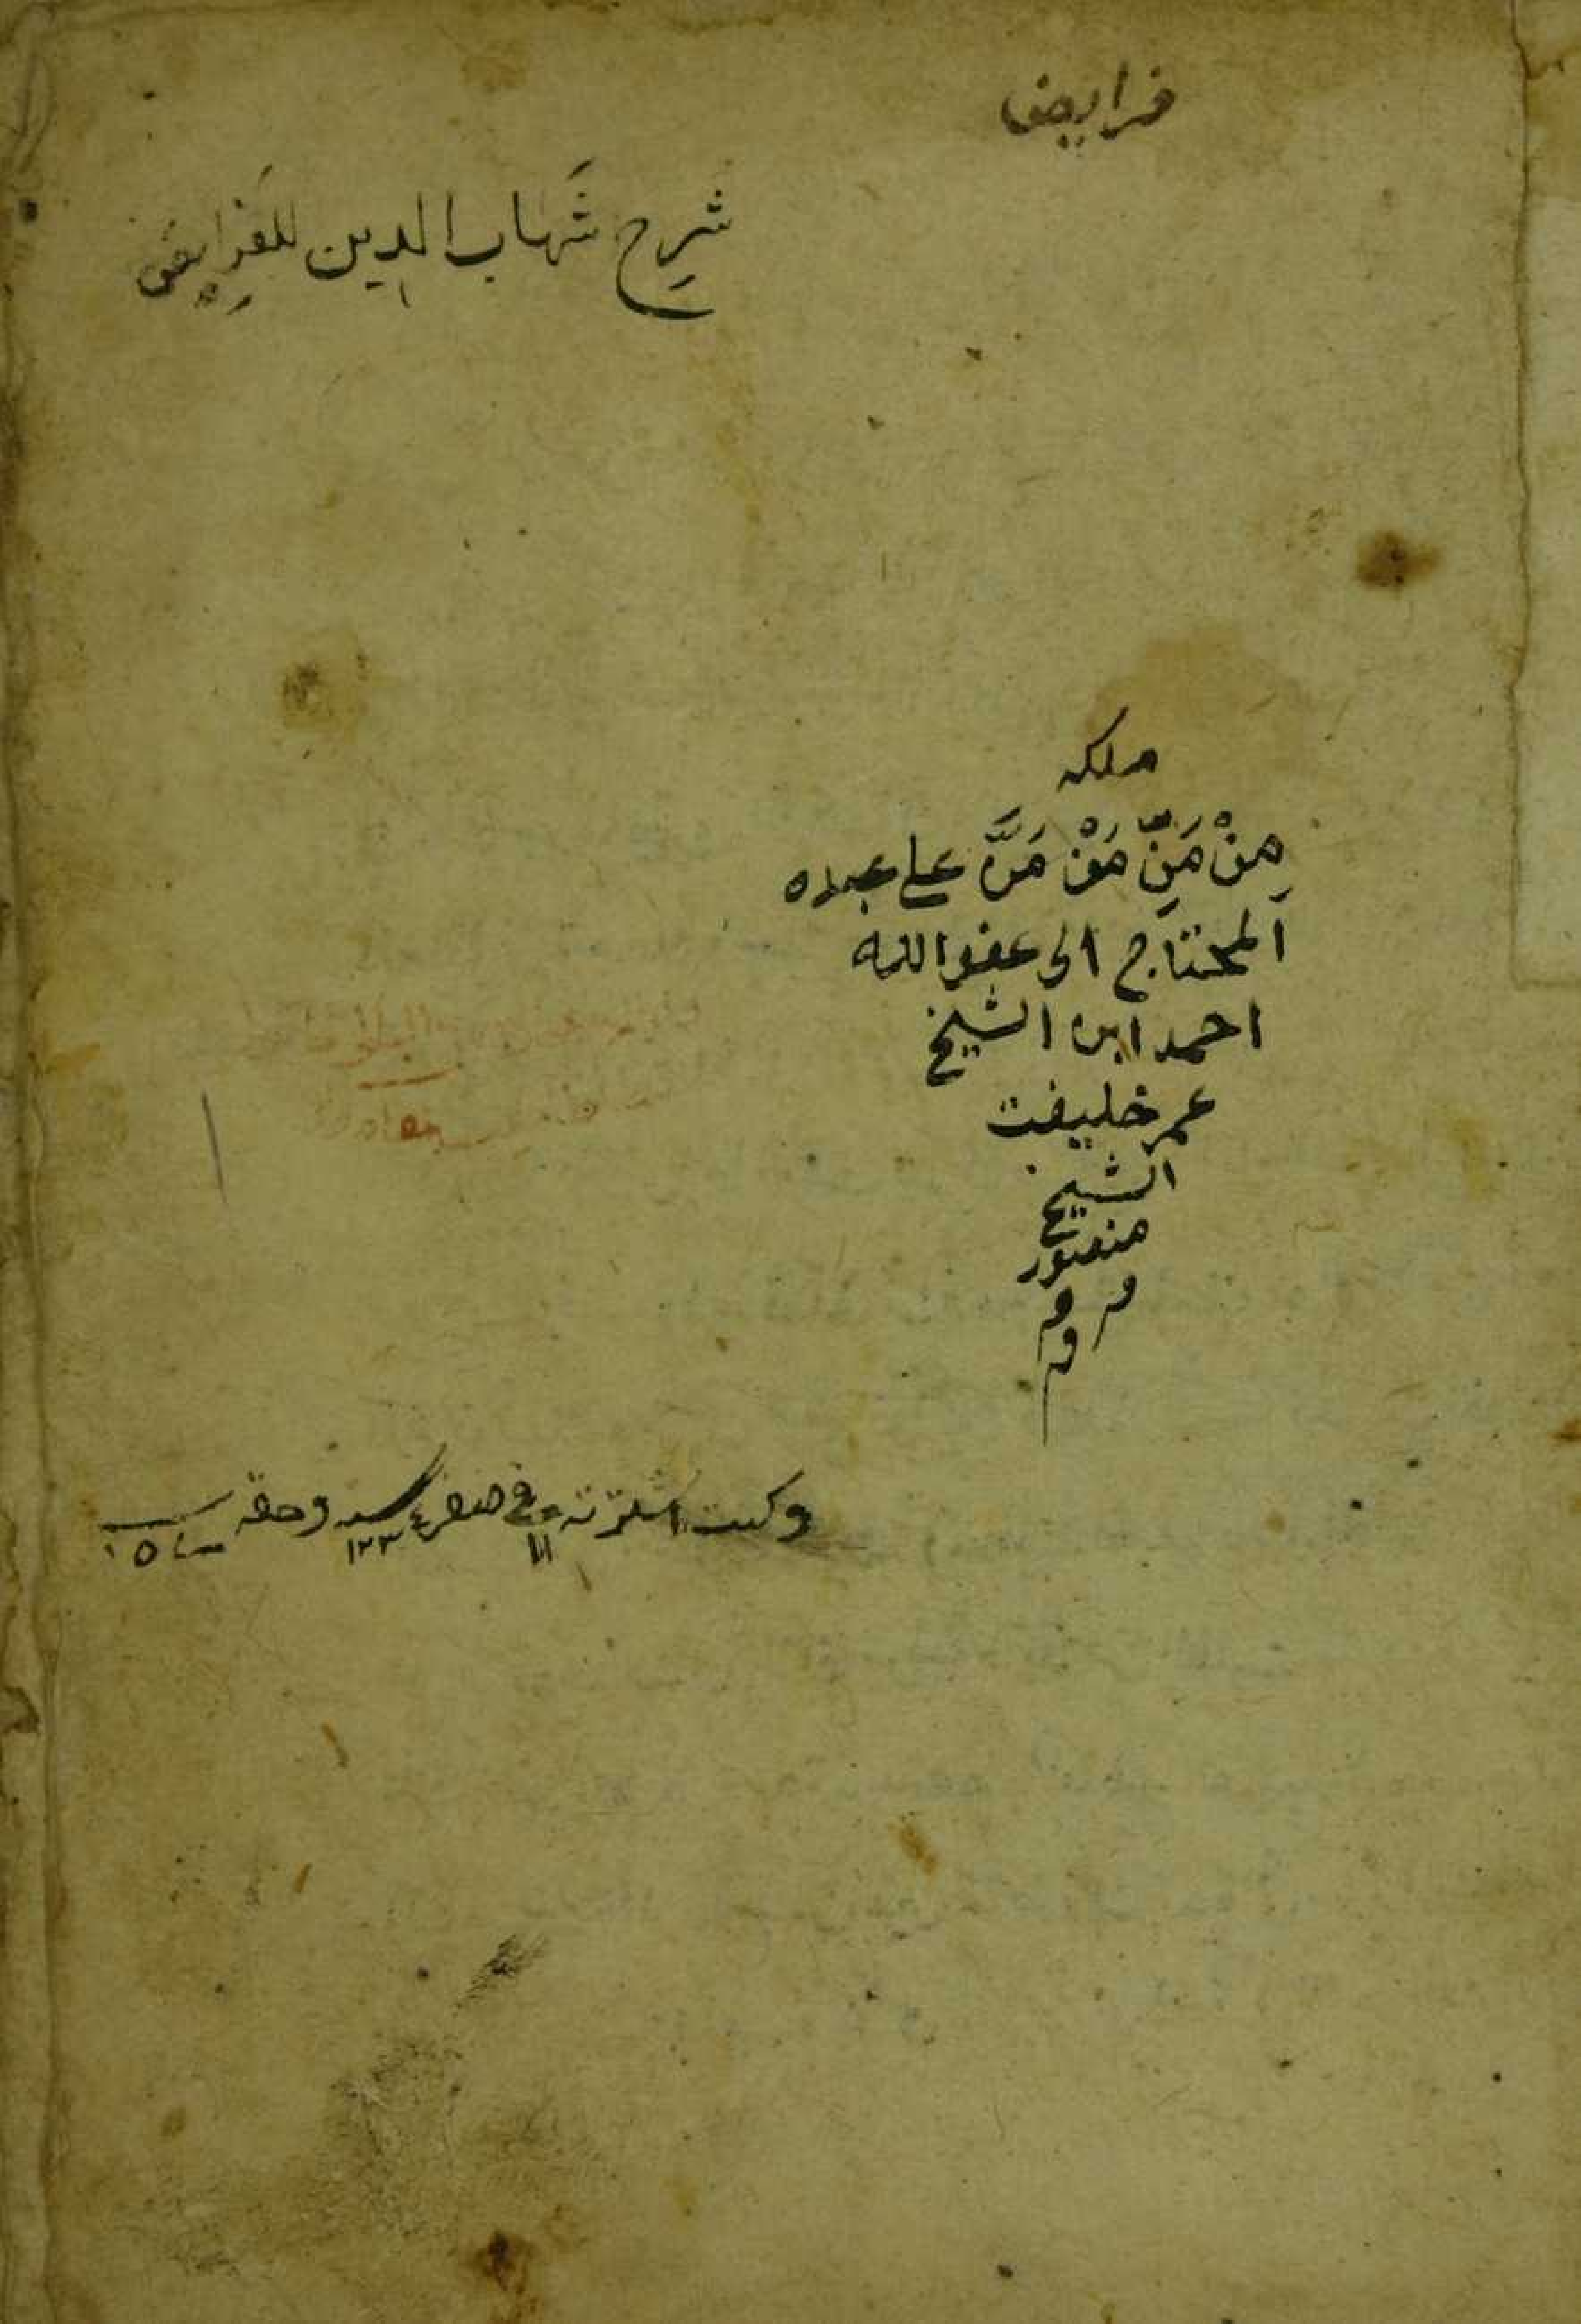 فرايض
شرح شَهاب الدين للفَرايض
ملكه
مِنْ مَنِّ مَنْ مَنَّ على عبده
اَلمحتاج الى عفو الله
احمد ابن الشيخ
عمر خليفت
الشيخ
منصور
وكنت اشتريته في صفر سنه ١٢٣٤ وحقه